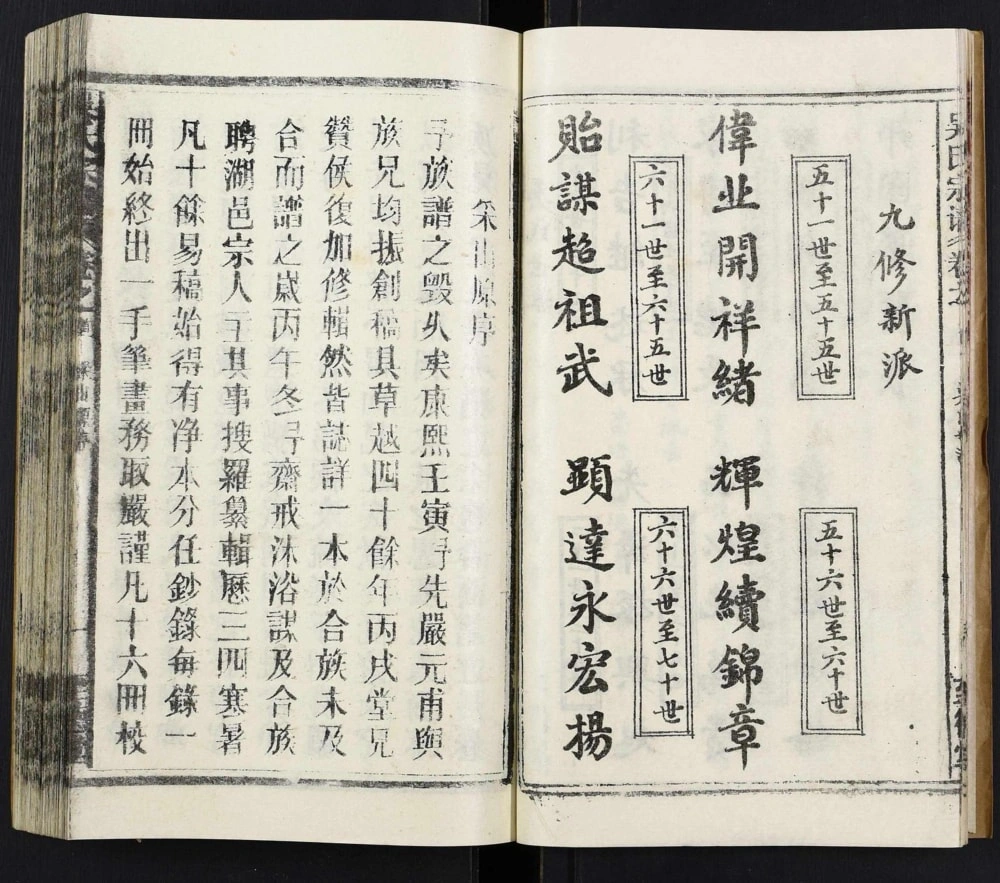 吳氏宗譜卷之
九修新派
五十一世至五十五世
五十六世至六十世
偉业開祥緒
輝煌續錦章
六十一世至六十五世
六十六世至七十世
貽謀超祖武
顕達永宏揚
原序
予族譜之毀久矣康熙壬寅予先嚴元甫與
族兄均振創稿其草越四十餘年丙戌堂兄
贊侯復加修輯然皆誌詳一本於合族未及
合而譜之歲丙午冬予齋戒沐浴謀及合族
聘湖邑宗人主其事搜羅纂輯歷三四寒暑
凡十餘易稿始得有净本分任鈔錄每錄一
冊始終出一手筆畫務取嚴謹凡十六冊校